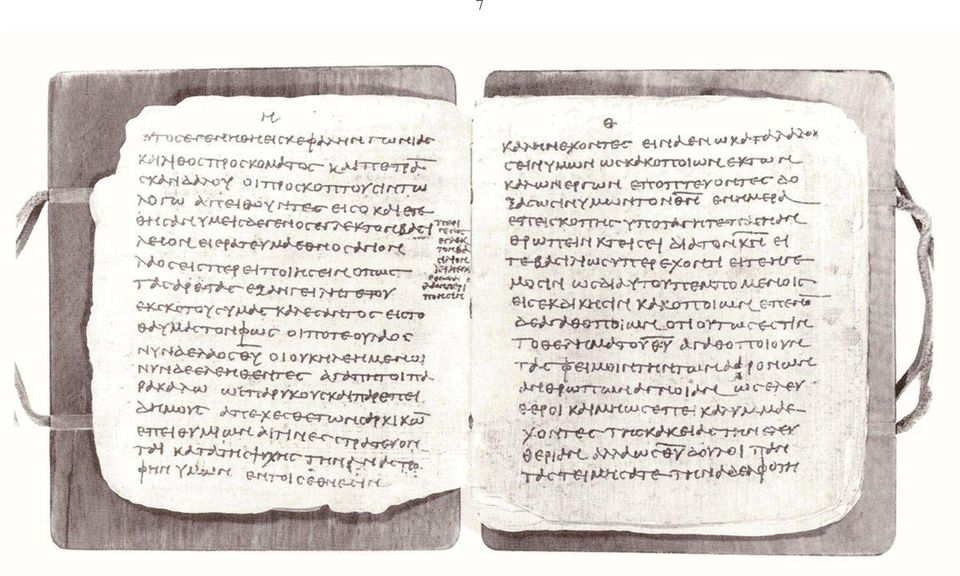 7
Η
ΥΤΟΣ ΕΓΕΝΗΘΗ ΕΙΣ ΚΕΦΑΛΗΝ ΓΩΝΙΑΣ
ΚΑΙ ΛΙΘΟΣ ΠΡΟΣΚΟΜΑΤΟΣ ΚΑΙ ΠΕΤΡΑ
ΣΚΑΝΔΑΛΟΥ ΟΙ ΠΡΟΣΚΟΠΤΟΥΣΙΝ ΤΩ
ΛΟΓΩ ΑΠΕΙΘΟΥΝΤΕΣ ΕΙΣ Ο ΚΑΙ ΕΤΕ
ΘΗΣΑΝ ΥΜΕΙΣ ΔΕ ΓΕΝΟΣ ΕΓΛΕΚΤΟΝ ΒΑΣΙ
ΛΕΙΟΝ ΕΙΕΡΑΤΕΥΜΑ ΕΘΝΟΣ ΑΓΙΟΝ
ΛΑΟΣ ΕΙΣ ΠΕΡΕΙΠΟΙΗΣΕΙΝ ΟΠΩΣ
ΤΑΣ ΑΡΕΤΑΣ ΕΞΑΝΓΕΙΛΗΤΕ ΤΟΥ
ΕΚ ΣΚΟΤΟΥΣ ΥΜΑΣ ΚΑΛΕΣΑΝΤΟΣ ΕΙΣ ΤΟ
ΘΑΥΜΑΣΤΟΝ ΦΩΣ ΟΙ ΠΟΤΕ ΟΥ ΛΑΟΣ
ΝΥΝ ΔΕ ΛΑΟΣ ΘΥ ΟΙ ΟΥΚ ΗΛΕΗΜΕΝΟΙ
ΝΥΝ ΔΕ ΕΛΕΗΘΕΝΤΕΣ ΑΓΑΠΗΤΟΙ ΠΑ
ΡΑΚΑΛΩ ΩΣ ΠΑΡΥΚΟΥΣ ΚΑΙ ΠΑΡΕΠΕΙ
ΔΗΜΟΥΣ ΑΠΕΧΕΣΘΕ ΤΩΝ ΣΑΡΚΙΚΩ
ΕΠΕΙΘΥΜΙΩΝ ΑΙΤΙΝΕΣ ΣΤΡΑΤΕΥΟΝ
ΤΑΙ ΚΑΤΑ ΤΗΣ ΨΥΧΗΣ ΤΗΝ ΑΝΑΣΤΡΟ
ΦΗΝ ΥΜΩΝ ΕΝ ΤΟΙΣ ΕΘΝΕΣΙΝ
ΠΕΡΙ
ΓΕΝΟΣ
ΕΓΛΕΚ
ΤΟΝ ΒΑ
ΣΙΛΙΟΝ
ΠΟΙΗΣΙΝ
Θ
ΚΑΛΗΝ ΕΧΟΝΤΕΣ ΕΙΝΑ ΕΝ Ω ΚΑΤΑΛΑΛΟΥ
ΣΕΙΝ ΥΜΩΝ ΩΣ ΚΑΚΟΠΟΙΩΝ ΕΚ ΤΩΝ
ΚΑΛΩΝ ΕΡΓΩΝ ΕΠΟΠΤΕΥΟΝΤΕΣ ΔΟ
ΞΑΣΩΣΙΝ ΥΜΩΝ ΤΟΝ ΘΝ ΕΝ ΗΜΕΡΑ
ΕΠΕΙΣΚΟΠΗΣ ΥΠΟΤΑΓΗΤΕ ΠΑΣΗ ΑΝ
ΘΡΩΠΕΙΝΗ ΚΤΕΙΣΕΙ ΔΙΑ ΤΟΝ ΚΝ ΕΙ
ΤΕ ΒΑΣΙΛΙ ΩΣ ΥΠΕΡΕΧΟΝΤΙ ΕΙΤΕ ΗΓΕ
ΜΟΣΙΝ ΩΣ ΔΙ ΑΥΤΟΥ ΠΕΜΠΟΜΕΝΟΙΣ
ΕΙΣ ΕΚΔΙΚΗΣΙΝ ΚΑΚΟΠΟΙΩΝ ΕΠΕΝΟ
ΔΕ ΑΓΑΘΟΠΟΙΩΝ ΟΤΙ ΟΥΤΩΣ ΕΣΤΙΝ
ΤΟ ΘΕΛΗΜΑ ΤΟΥ ΘΥ ΑΓΑΘΟΠΟΙΟΥΝ
ΤΑΣ ΦΕΙΜΟΙΝ ΤΗΝ ΤΩΝ ΑΦΡΟΝΩΝ
ΑΝΘΡΩΠΩΝ ΑΓΝΟΙΑΝ ΩΣ ΕΛΕΥ
ΘΕΡΟΙ ΚΑΙ ΜΗ ΩΣ ΕΠΕΙΚΑΛΥΜΜΑ Ε
ΧΟΝΤΕΣ ΤΗΣ ΚΑΚΕΙΑΣ ΤΗΝ ΕΛΕΥ
ΘΕΡΙΑΝ ΑΛΛ ΩΣ ΘΥ ΔΟΥΛΟΙ ΠΑΝ
ΤΑΣ ΤΕΙΜΗΣΑΤΕ ΤΗΝ ΑΔΕΛΦΟΤΗ